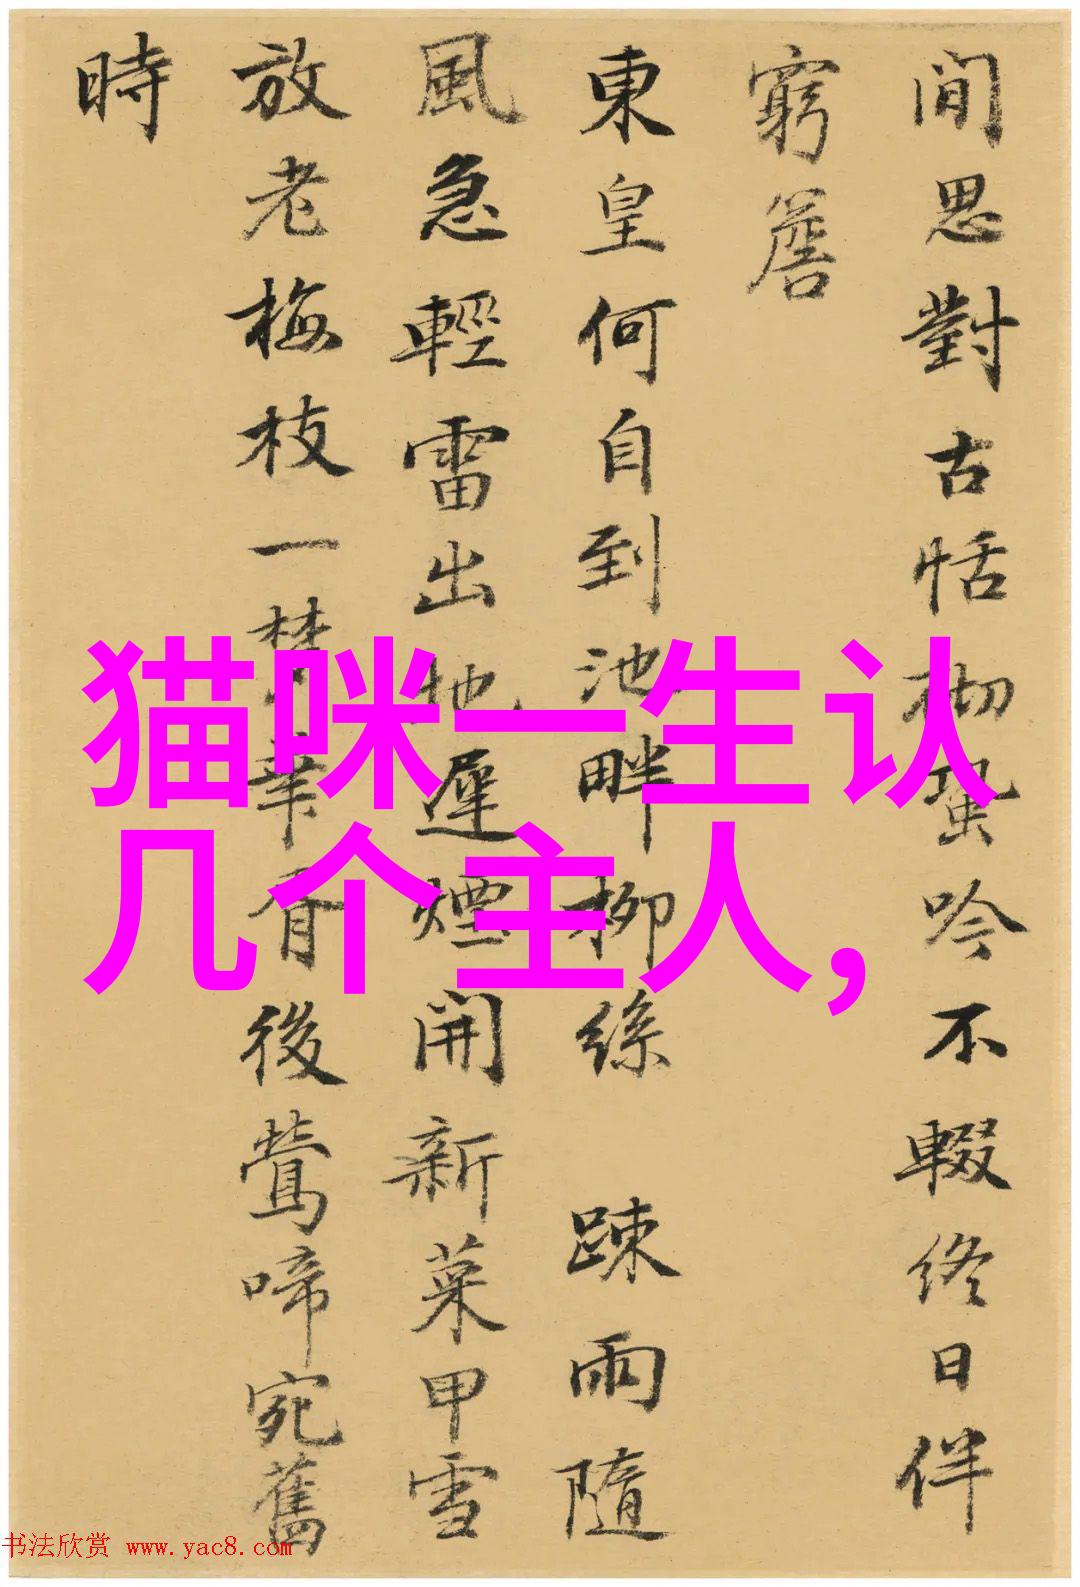 閒思對古恬砌蛩吟不輟終日伴
窮簷
東皇何自到池畔柳絲踈雨隨
風急輕雷出地遲煙開新菜甲雪
放老梅枝一
香後鶯啼宛舊
時
猫咪一生认
几个主人，
书法欣赏 www.yac8.com